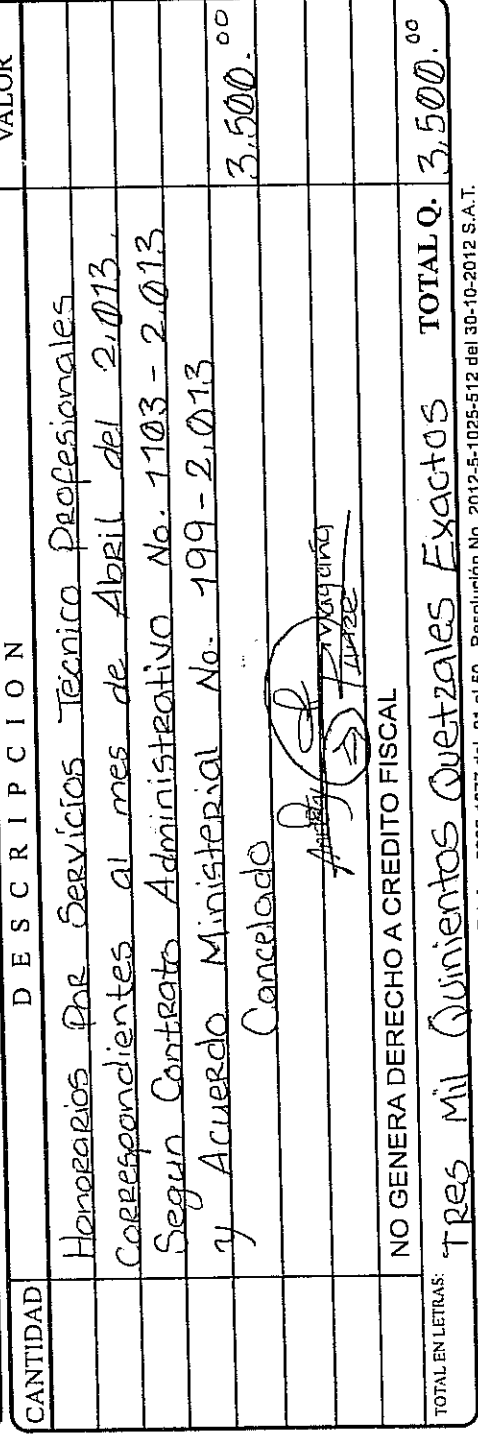 CANTIDAD DESCRIPCION VALOR
Honorarios Por Servicios Técnico Profesionales
Correspondientes al mes de Abril del 2,013.
Segun Contrato Administrativo No. 1103-2,013
y Acuerdo Ministerial No. 199-2,013 3,500.00
Cancelado
NO GENERA DERECHO A CREDITO FISCAL
TOTAL EN LETRAS: Tres Mil Quinientos Quetzales Exactos TOTAL Q. 3,500.00
Resolución No. 2012-5-1025-512 del 30-10-2012 S.A.T.